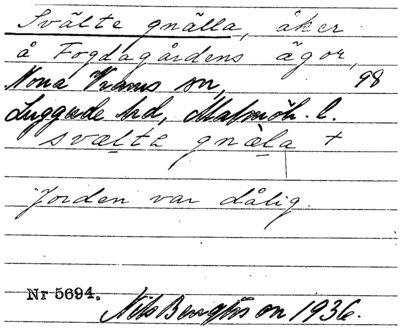 Svälte gnälla, åker
å Fogdagårdens ägor,
Norra Vrams sn, 98
Luggude hd, Malmöh. l.
svælta gnæla +
Jorden var dålig.
Nr 5694.
Nils Bengtsson 1936.